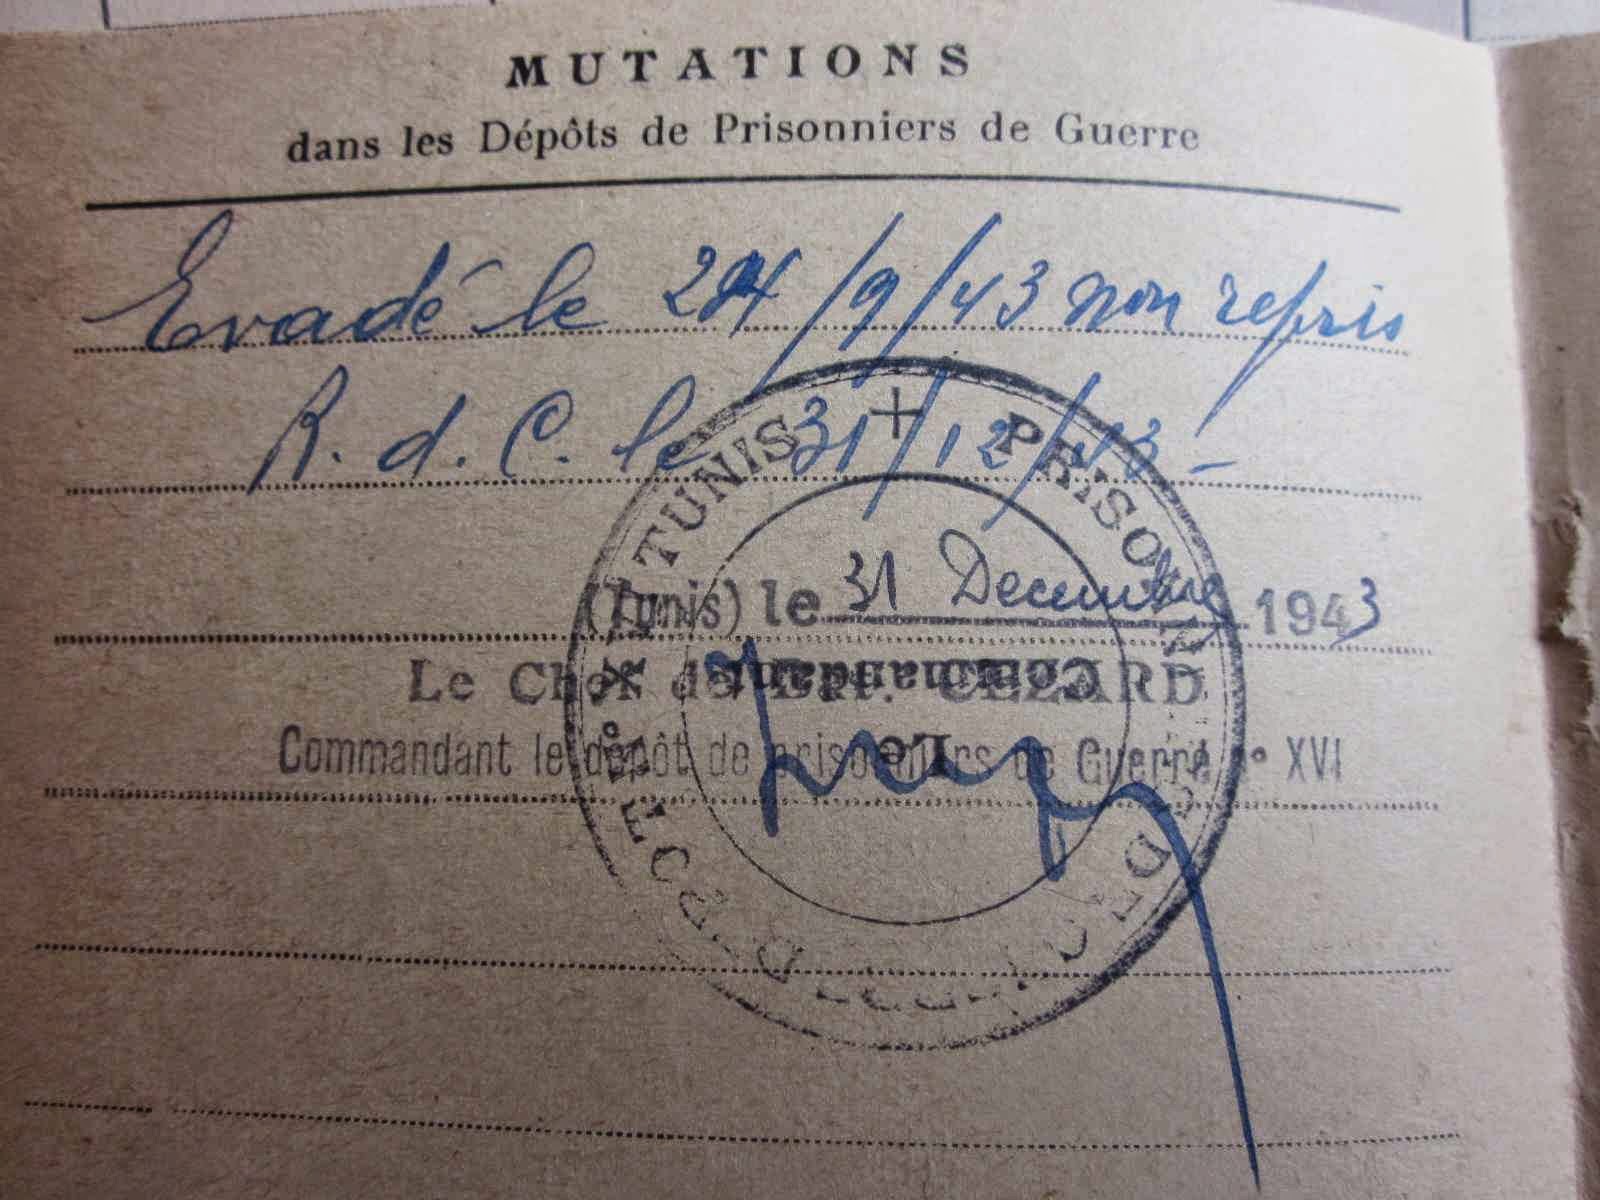 MUTATIONS
dans les Dépôts de Prisonniers de Guerre
Evadé le 24/9/43 non repris
R. d. C. le 31/12/43 -
(Tunis) le 31 Decembre 1943
Le Chef de Bat. CEZARD
Commandant le dépôt de prisonniers de Guerre n° XVI
TUNIS + PRISONNIERS DE
Le
Commandant